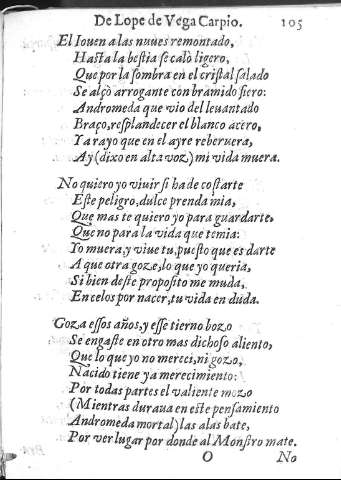 De Lope de Vega Carpio. 105
El Iouen a las nuues remontado,
Hasta la bestia se calò ligero,
Que por la sombra en el cristal salado
Se alçò arrogante con bramido fiero:
Andromeda que vio del leuantado
Braço, resplandecer el blanco acero,
Ya rayo que en el ayre reberuera,
Ay (dixo en alta voz) mi vida muera.
No quiero yo viuir si ha de costarte
Este peligro, dulce prenda mia,
Que mas te quiero yo para guardarte,
Que no para la vida que temia:
Yo muera, y viue tu, puesto que es darte
A que otra goze, lo que yo queria,
Si bien deste proposito me muda,
En celos por nacer, tu vida en duda.
Goza essos años, y esse tierno bozo
Se engaste en otro mas dichoso aliento,
Que lo que yo no mereci, ni gozo,
Nacido tiene ya merecimiento:
Por todas partes el valiente mozo
(Mientras duraua en este pensamiento
Andromeda mortal) las alas bate,
Por ver lugar por donde al Monstro mate.
O No